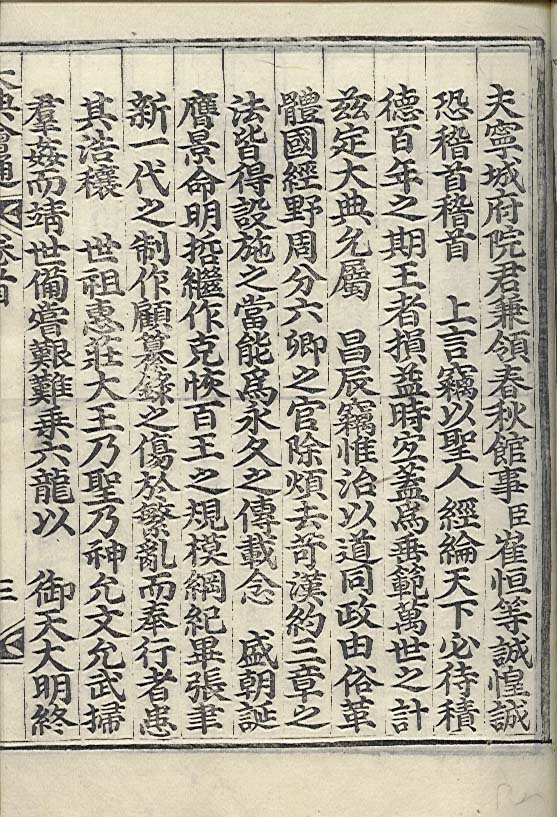 夫寧城府院君兼領春秋館事臣崔恒等誠惶誠
恐稽首稽首　上言竊以聖人經綸天下必待積
德百年之期王者損益時宜蓋爲垂範萬世之計
玆定大典允屬　昌辰竊惟治以道同政由俗革
體國經野周分六卿之官除煩去苛漢約三章之
法皆得設施之當能爲永久之傳載念　盛朝誕
膺景命明哲繼作克恢百王之規模綱紀畢張聿
新一代之制作顧纂錄之傷於繁亂而奉行者患
其浩穰　世祖惠莊大王乃聖乃神允文允武掃
羣姦而靖世備嘗艱難乗六龍以　御天大明終
大典會通　卷首　三